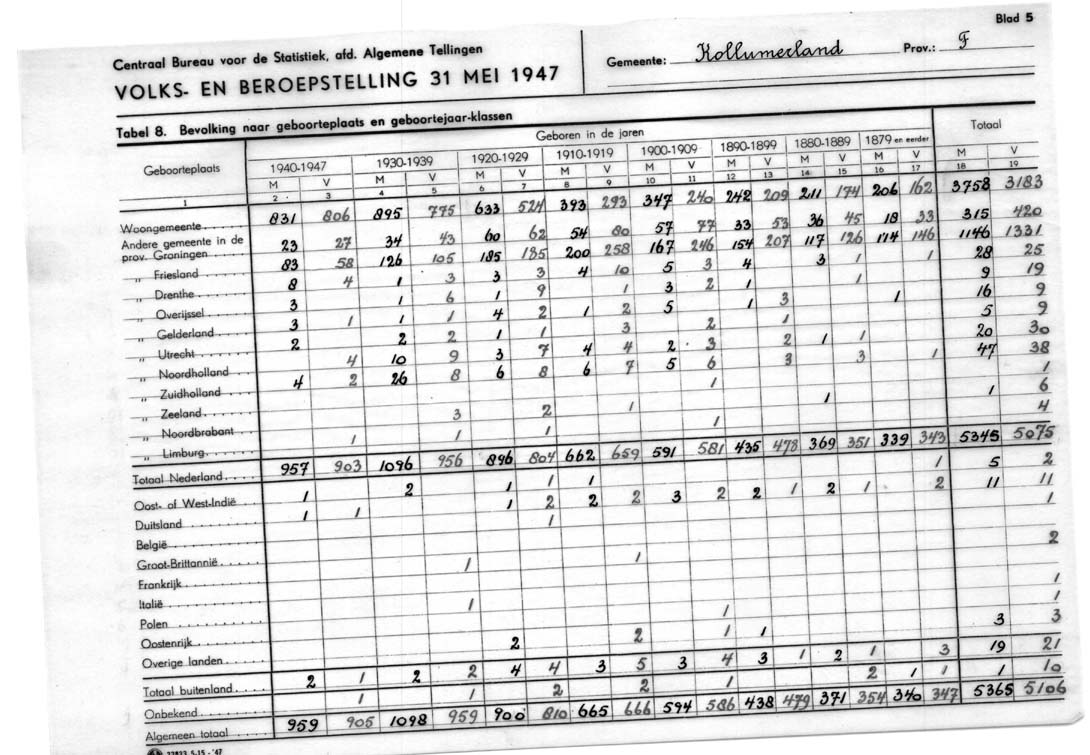 Blad 5
Centraal Bureau voor de Statistiek, afd. Algemene Tellingen
Gemeente: Kollumerland Prov.: F
VOLKS- EN BEROEPSTELLING 31 MEI 1947
Tabel 8. Bevolking naar geboorteplaats en geboortejaar-klassen
Geboorteplaats Geboren in de jaren Totaal
1940-1947 1930-1939 1920-1929 1910-1919 1900-1909 1890-1899 1880-1889 1879 en eerder
M V M V M V M V M V M V M V M V M V
1 2 3 4 5 6 7 8 9 10 11 12 13 14 15 16 17 18 19
Woongemeente 831 806 895 775 633 524 393 293 347 240 242 209 211 174 206 162 3758 3183
Andere gemeente in de
prov. Groningen 23 27 34 43 60 62 54 80 57 77 33 53 36 45 18 33 315 420
„ Friesland 83 58 126 105 185 185 200 258 167 246 154 207 117 126 114 146 1146 1331
„ Drenthe 8 4 1 3 3 3 4 10 5 3 4 3 1 1 28 25
„ Overijssel 3 1 6 1 9 1 3 2 1 1 9 19
„ Gelderland 3 1 1 1 4 2 1 2 5 1 3 1 16 9
„ Utrecht 2 2 2 1 1 3 2 1 5 9
„ Noordholland 4 10 9 3 7 4 4 2 3 2 1 1 20 30
„ Zuidholland 4 2 26 8 6 8 6 7 5 6 3 3 1 47 38
„ Zeeland 1 1 1 1
„ Noordbrabant 3 2 1 6
„ Limburg 1 1 1 1 4
Totaal Nederland 957 903 1096 956 896 804 662 659 591 581 435 478 369 351 339 343 5345 5075
Oost- of West-Indië 1 2 1 1 1 1 5 2
Duitsland 1 1 1 2 2 2 3 2 2 1 2 1 2 11 11
België 1 1
Groot-Brittannië
Frankrijk 1 1 2
Italië
Polen 1 1
Oostenrijk 1 1
Overige landen 2 2 1 1 3 3
Totaal buitenland 2 1 2 2 4 4 3 5 3 4 3 1 2 1 3 19 21
Onbekend 1 1 2 2 1 2 1 1 1 10
Algemeen totaal 959 905 1098 959 900 810 665 666 594 586 438 479 371 354 340 347 5365 5106
22833 5-15-'47